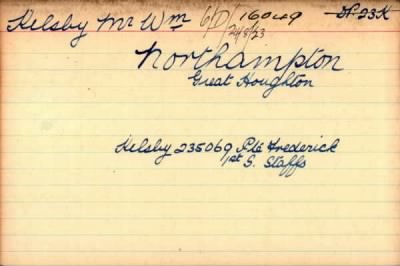 Kelsby Mr Wm 6/D/16049 D. 23K
24/8/23
Northampton
Great Houghton
Kelsby 235069 Pte Frederick
1st S. Staffs